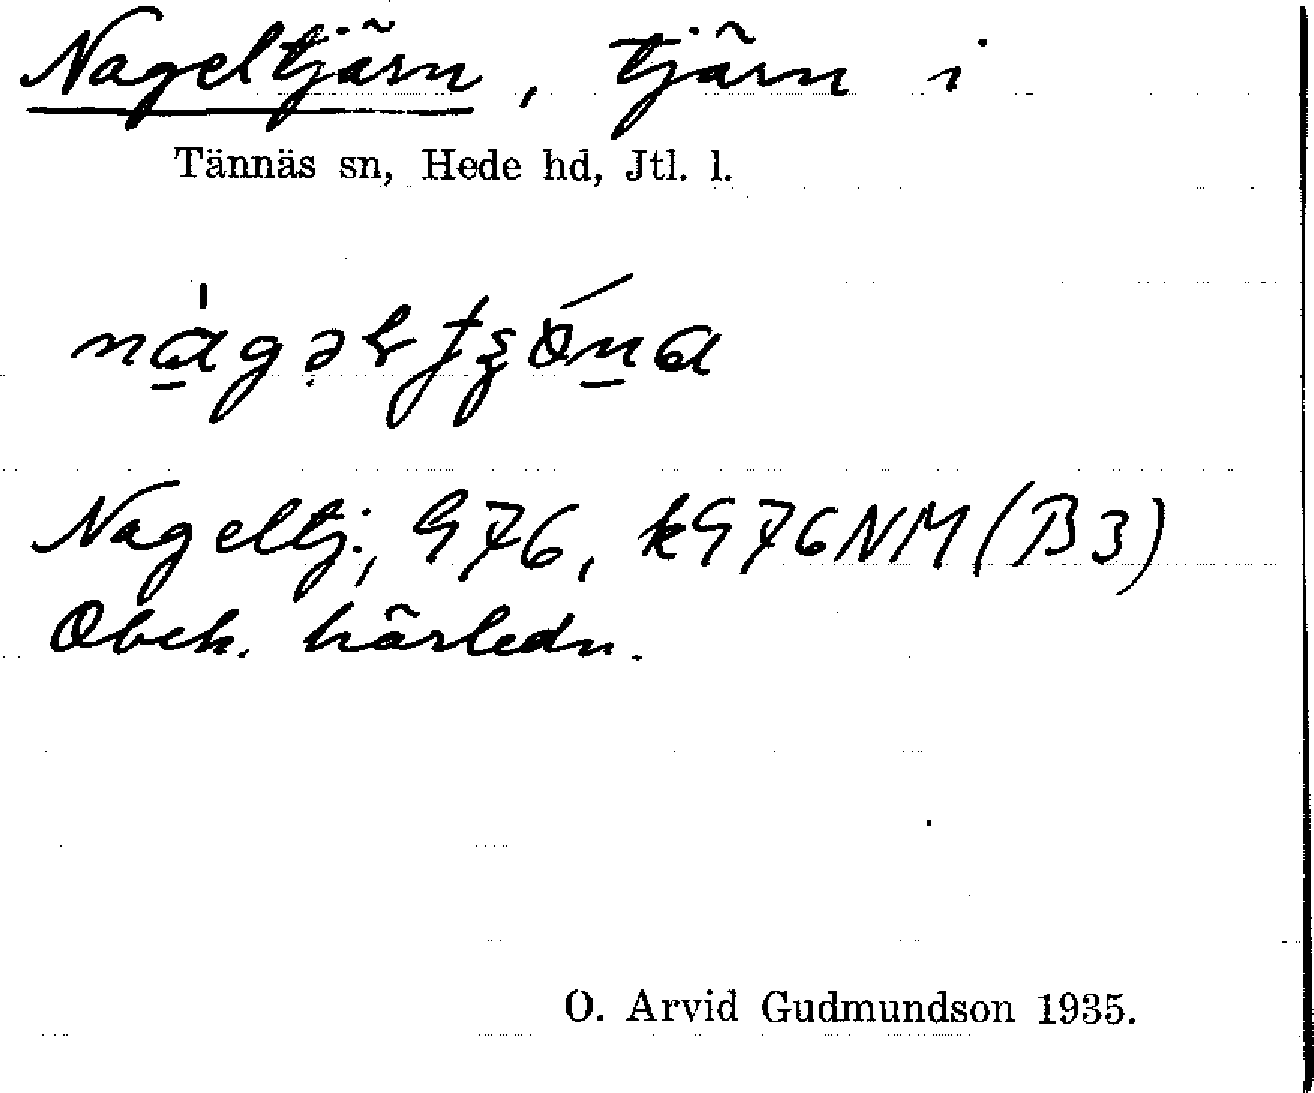 Nageltjärn, tjärn i
Tännäs sn, Hede hd, Jtl. l.
Nageltj., G76, kG76NM(B3)
Obek. härledn.
O. Arvid Gudmundson 1935.